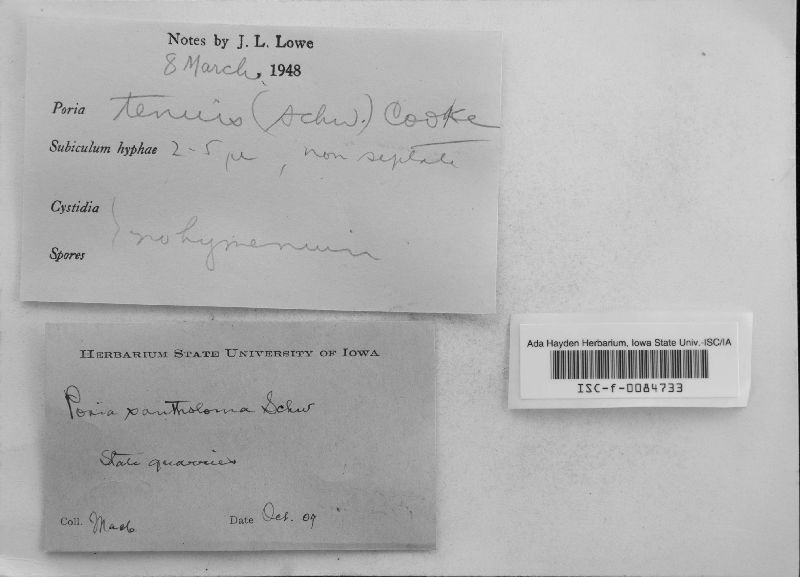 Notes by J. L. Lowe
8 March, 1948
Poria tenuis (Schw.) Cooke
Subiculum hyphae 2-5 µ, non septate
Cystidia
no hymenium
Spores
HERBARIUM STATE UNIVERSITY OF IOWA
Poria xantholoma Schw
State quarries
Coll. Macb Date Oct. 09
Ada Hayden Herbarium, Iowa State Univ.-ISC/IA
ISC-f-0084733